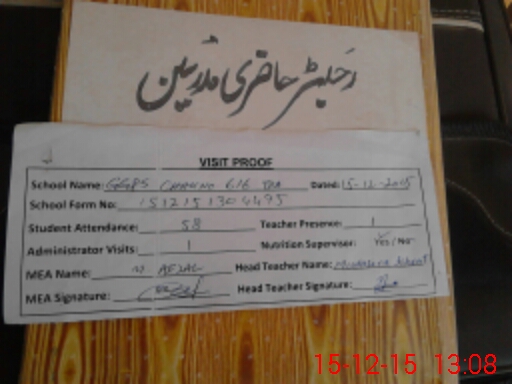 رجسٹر حاضری مدرسین
VISIT PROOF
School Name: GGPS Chak No 616 TDA Dated: 15-12-2015
School Form No: 151215130 4495
Student Attendance: 58 Teacher Presence: 1
Administrator Visits: 1 Nutrition Supervisor: Yes / No
MEA Name: M AFZAL Head Teacher Name:
MEA Signature: Head Teacher Signature:
15-12-15 13:08